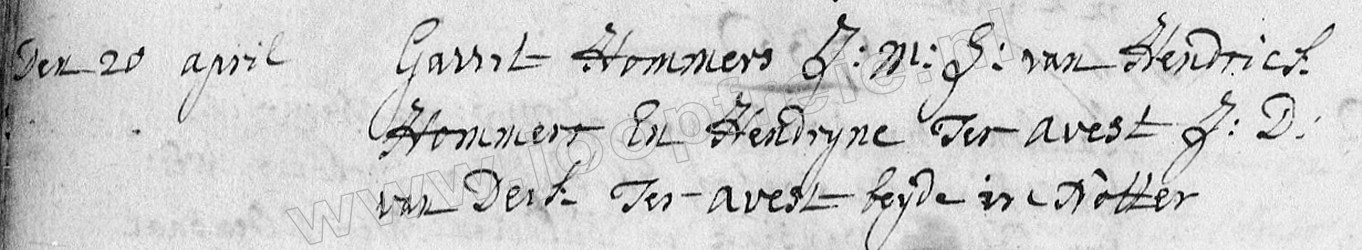 Den 20 april Garrit Hommers J: M: Z: van Hendrick
Hommers En Hendryne Ter avest J: D:
van Derk Ter-avest beyde in Notter